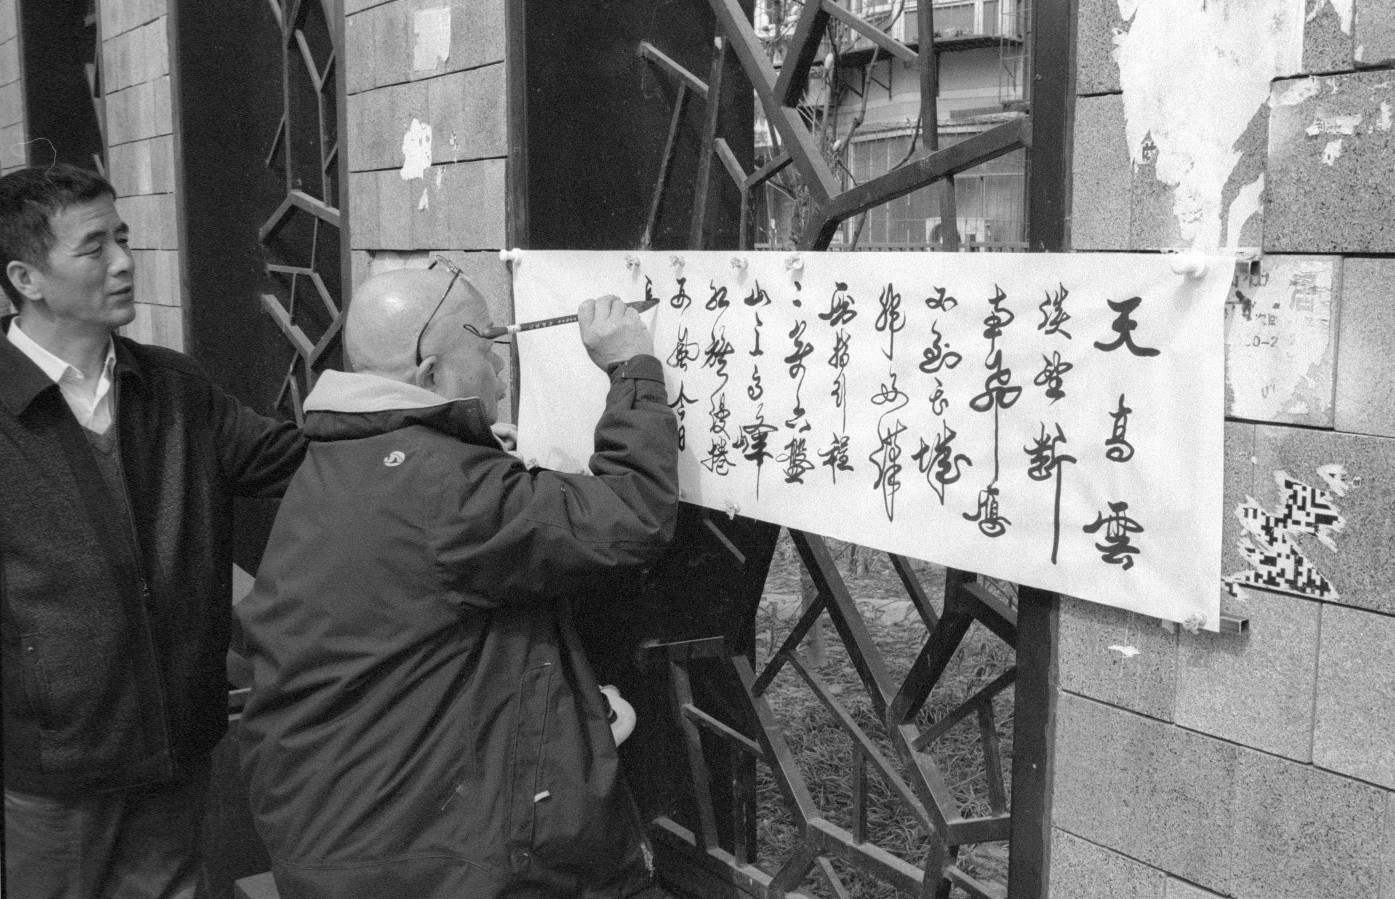 天高雲
淡望断
南飛雁
不到长城
非好漢
屈指行程
二万六盤
山上高峰
红旗漫捲
西風今日